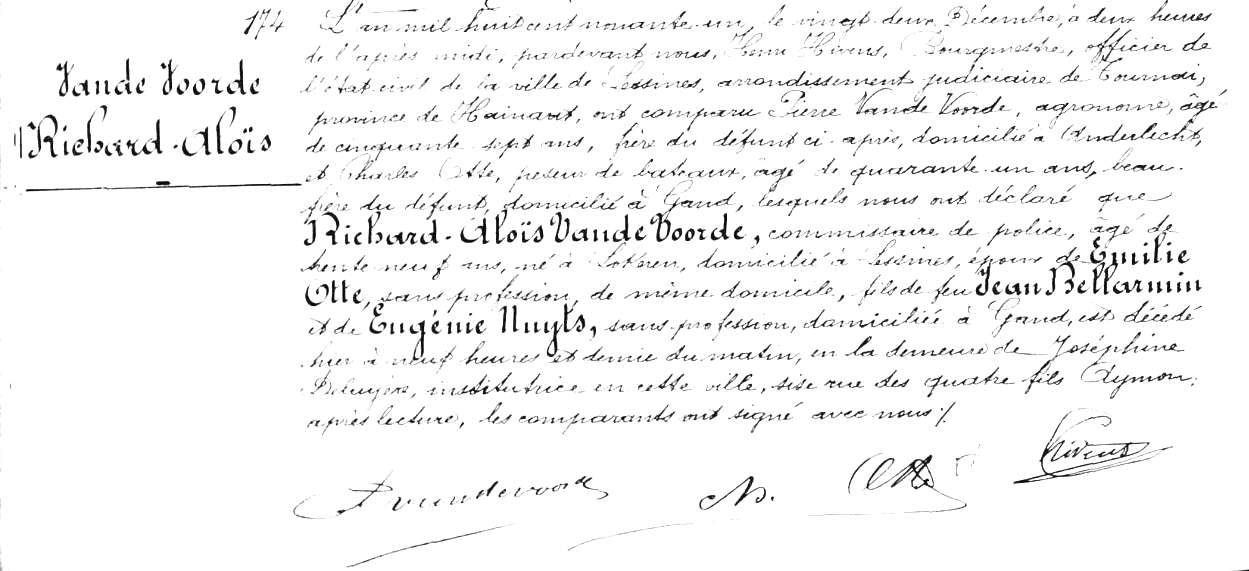 174
Vande Voorde
Richard-Aloïs
L'an mil huit cent nonante un, le vingt deux Décembre, à deux heures
de l'après midi, pardevant nous, Henri Hivens, Bourgmestre, officier de
l'état civil de la ville de Lessines, arrondissement judiciaire de Tournai,
province de Hainaut, ont comparu Pierre Vande Voorde, agronome, âgé
de cinquante sept ans, frère du défunt ci-après, domicilié à Anderlecht,
et Charles Otte, peseur de bateaux, âgé de quarante un ans, beau-
frère du défunt, domicilié à Gand, lesquels nous ont déclaré que
Richard-Aloïs Vande Voorde, commissaire de police, âgé de
trente neuf ans, né à Lokeren, domicilié à Lessines, époux de Emilie
Otte, sans profession, de même domicile, fils de feu Jean Bellarmin
et de Eugénie Nuyts, sans profession, domiciliée à Gand, est décédé
hier à neuf heures et demie du matin, en la demeure de Joséphine
institutrice en cette ville, sise rue des quatre fils Aymon;
après lecture, les comparants ont signé avec nous ./.
P vandevoorde
Ch. Otte
Hivens